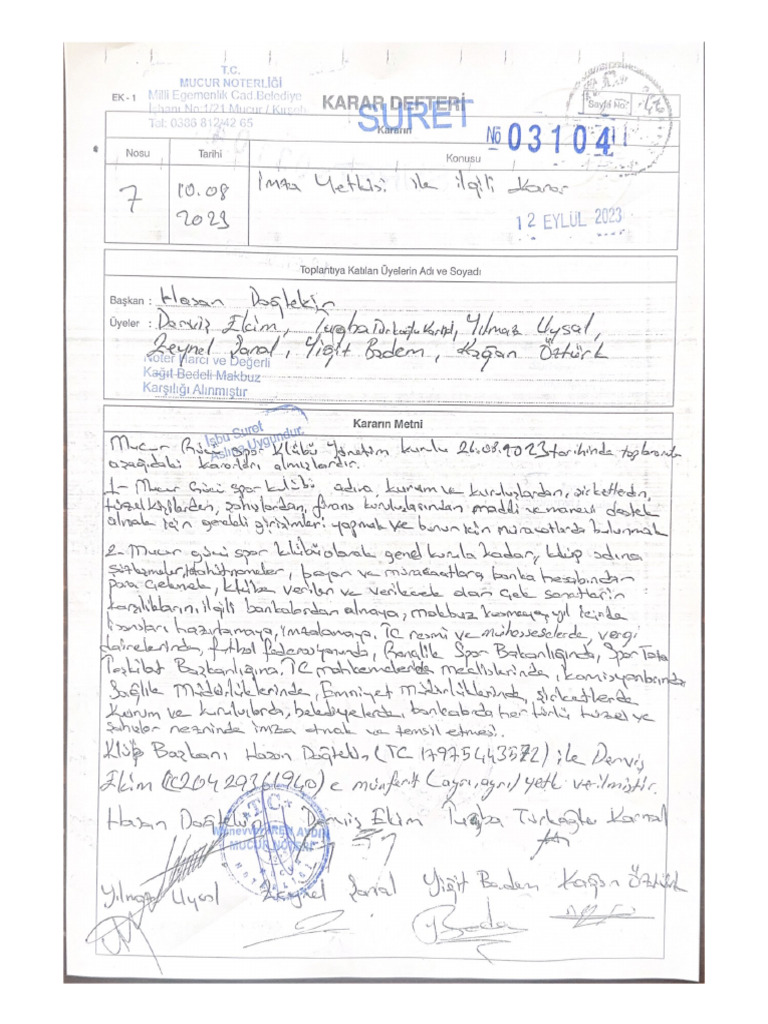 T.C.
MUCUR NOTERLİĞİ
EK - 1 Milli Egemenlik Cad Belediye
İşhanı No:1/21 Mucur / Kırşeh
Tel: 0386 812 42 65
KARAR DEFTERİ
SURET
Sayfa No:
Kararın
Nº 03104
Nosu Tarihi Konusu
7 10.08 2023 İmza Yetkisi ile ilgili Karar
12 EYLÜL 2023
Toplantıya Katılan Üyelerin Adı ve Soyadı
Başkan : Hasan Doğtekin
Üyeler : Derviş Ekim, Tuğba Türkoğlu Kartal, Yılmaz Uysal,
Zeynel Şanal, Yiğit Badem, Kağan Öztürk
Noter Harcı ve Değerli
Kağıt Bedeli Makbuz
Karşılığı Alınmıştır
İşbu Suret
Aslına Uygundur.
Kararın Metni
Mucur Gücü Spor Klübü Yönetim kurulu tarihinde toplanarak
aşağıdaki kararları almışlardır.
1- Mucur Gücü spor klübü adına, kurum ve kuruluşlardan, şirketlerden,
tüzel kişilerden, şahıslardan, finans kuruluşlarından maddi ve manevi destek
almak için gerekli girişimleri yapmak ve bunun için müracatlarda bulunmak
2- Mucur gücü spor klübü olarak genel kurula kadar, klüp adına
sözleşmeler, taahütnameler, beyan ve müracaatlara, banka hesabından
para çekmek, klübe verilen ve verilecek olan çek senetlerin
karşılıklarını, ilgili bankalardan almaya, makbuz kesmeye, yıl içinde
hazırlamaya, imzalamaya, TC resmi ve müesseselerde, vergi
dairelerinde, futbol federasyonunda, Gençlik Spor Bakanlığında, Spor Toto
Teşkilat Başkanlığına, TC mahkemelerde meclislerinde, komisyonlarında
Sağlık Müdürlüklerinde, Emniyet Müdürlüklerinde, şirketlerde
kurum ve kuruluşlarda, belediyelerde, bankalarda her türlü tüzel ve
şahıslar nezninde imza etmek ve temsil etmesi.
Klüp Başkanı Hasan Doğtekin (TC 17975443572) ile Derviş
Ekim (TC20429361940) e münferit (ayrı, ayrı) yetki verilmiştir.
Hasan Doğtekin Derviş Ekim Tuğba Türkoğlu Kartal
T.C.
AYDIN
MUCUR NOTERİ
Yılmaz Uysal Zeynel Şanal Yiğit Badem Kağan Öztürk